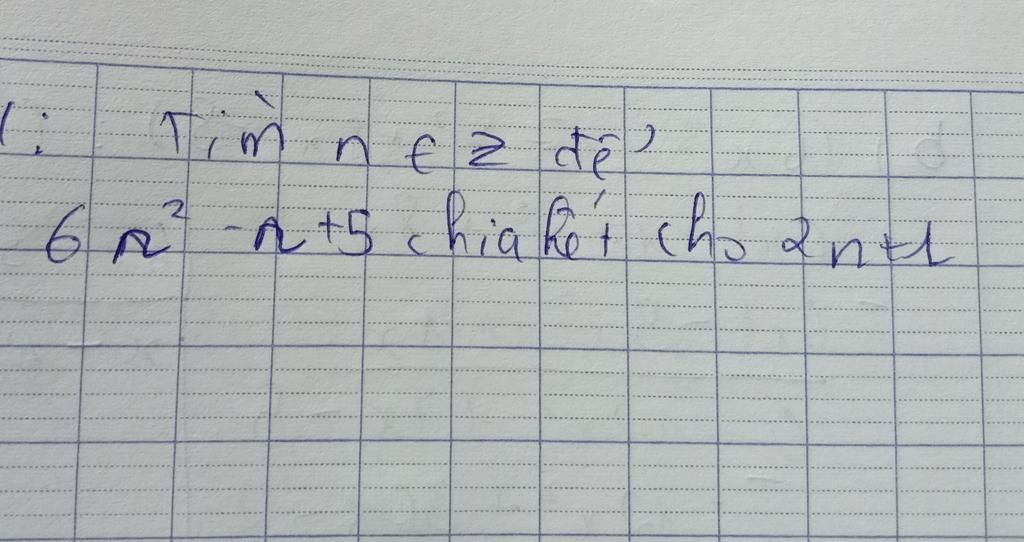 1: Tìm n € Z để
6n² - n + 5 chia hết cho 2n+1